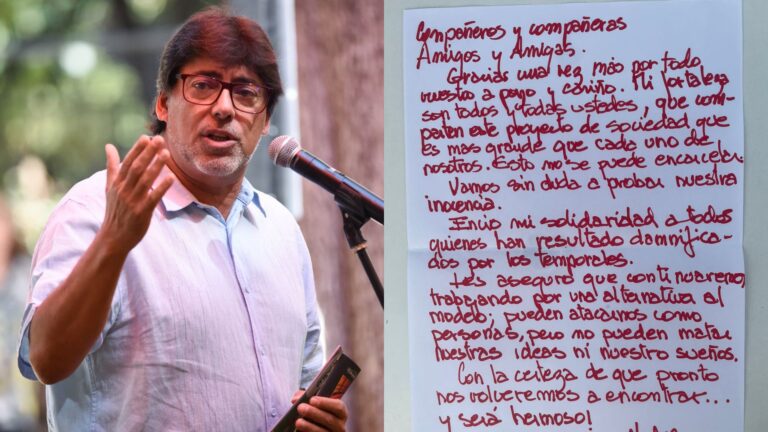 Compañeros y compañeras
Amigos y Amigas.
Gracias una vez más por todo
vuestro apoyo y cariño. Mi fortaleza
son todos y todas ustedes, que com-
parten este proyecto de sociedad que
es mas grande que cada uno de
nosotros. Esto no se puede encarcelar.
Vamos sin duda a probar nuestra
inocencia.
Envio mi solidaridad a todos
quienes han resultado damnifica-
dos por los temporales.
Les aseguro que continuaremos
trabajando por una alternativa al
modelo; pueden atacarnos como
personas, pero no pueden matar
nuestras ideas ni nuestro sueños.
Con la certeza de que pronto
nos volveremos a encontrar...
y será hermoso!